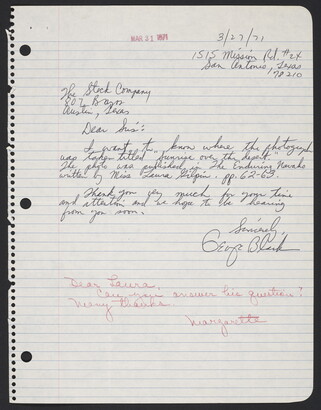 MAR 31 1971
3/27/71
1515 Mission Rd. #24
San Antonio, Texas
78210
The Steck Company
807 Brazos
Austin, Texas
Dear Sirs:
I want to know where the photograph
was taken titled "Sunrise over the desert."
The photo was published in The Enduring Navaho
written by Miss Laura Gilpin. pp. 62-63.
Thank you very much for your time
and attention and we hope to be hearing
from you soon.
Sincerely,
George
Dear Laura,
Can you answer his question?
Many thanks.
Margarette